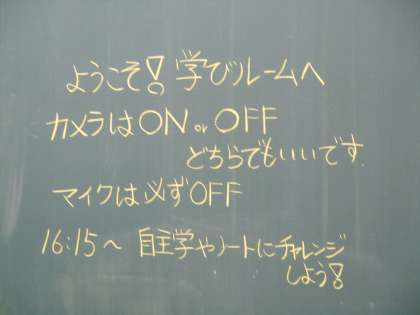 ようこそ! 学びルームへ
カメラはON or OFF
どちらでもいいです.
マイクは必ずOFF
16:15〜 自主学やノートにチャレンジ
しよう!